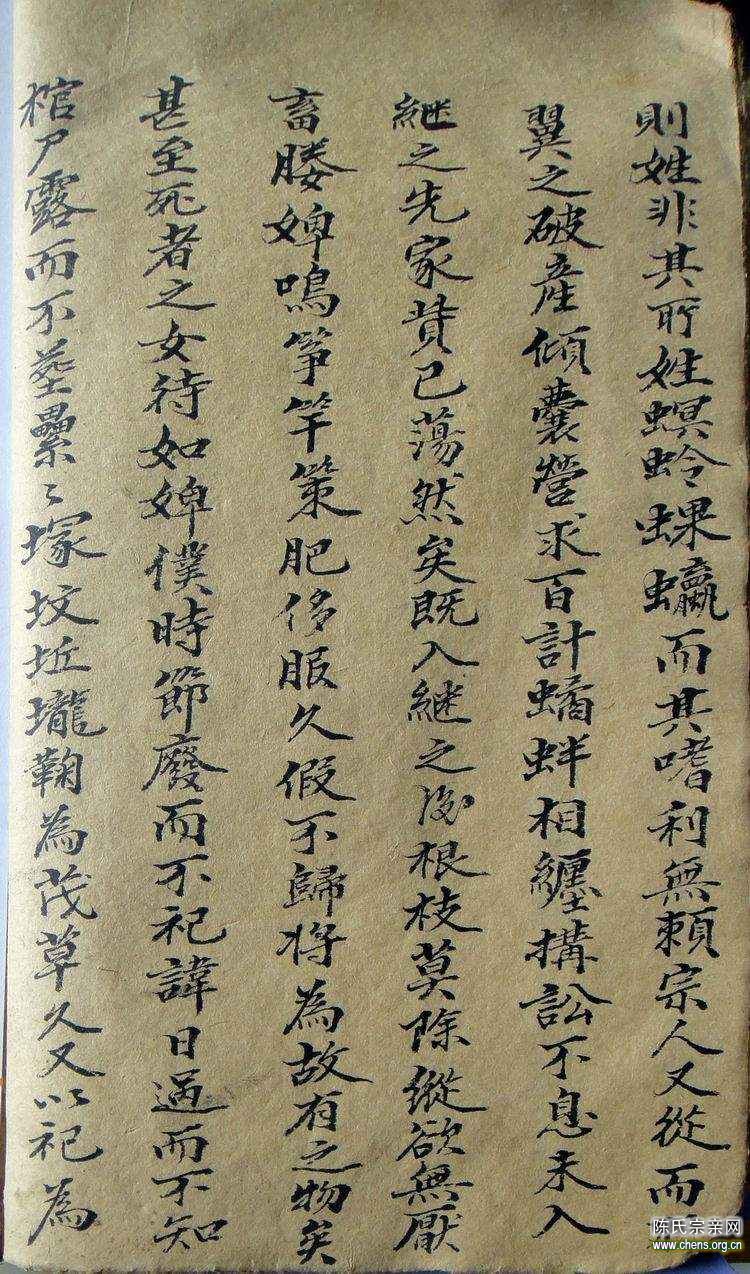 則姓非其所姓螟蛉蜾蠃而其嗜利無賴宗人又從而
翼之破產傾囊營求百計蟠蚌相纏搆訟不息未入
継之先家貲已蕩然矣既入継之後根枝莫除縱欲無厭
畜媵婢鳴箏竽策肥侈服久假不歸將為故有之物矣
甚至死者之女待如婢僕時節廢而不祀諱日過而不知
棺尸露而不塟纍〻塚坟坵壠鞠為茂草久又以祀為
陈氏宗亲网
www.chens.org.cn